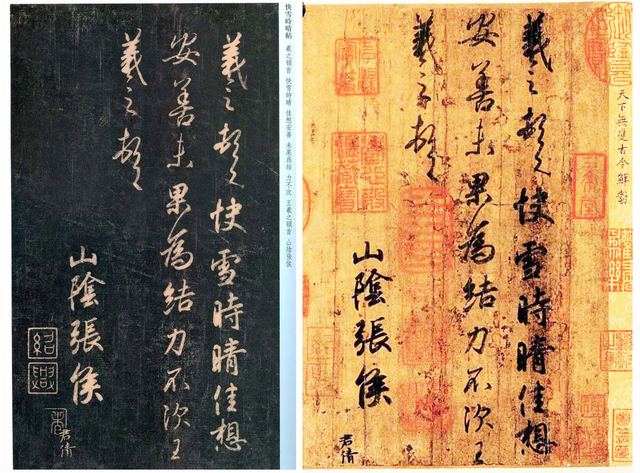 快雪時晴帖 羲之頓首 快雪時晴 佳想安善 未果為結 力不次 王羲之頓首 山陰張侯
羲之頓首快雪時晴佳想
安善未果為結力不次王
羲之頓首
山陰張侯
君倩
紹興
天下無雙古今鮮對
羲之頓首快雪時晴佳想
安善未果為結力不次王
羲之頓首
山陰張侯
君倩